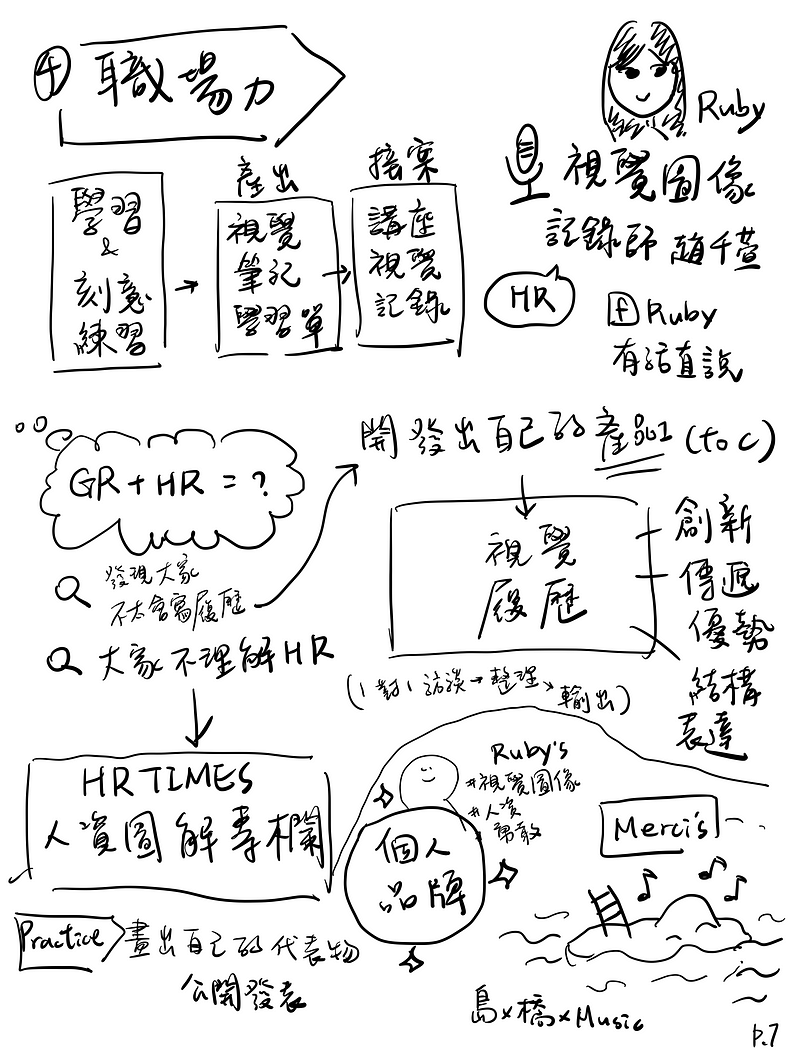 ④ 職場力
學習
&
刻意
練習
產出
視覺
筆記
學習單
接案
講座
視覺
記錄
Ruby
視覺圖像
記錄師 趙千萱
HR
f Ruby
有話直說
GR + HR = ?
發現大家
不太會寫履歷
大家不理解HR
HR TIMES
人資圖解專欄
開發出自己的產品 (to C)
視覺
履歷
創新
傳遞
優勢
結構
表達
(1對1訪談→整理→輸出)
Ruby's
#視覺圖像
#人資
勇敢
個人
品牌
Practice
畫出自己的代表物
公開發表
Merci's
島×橋×Music
p.7